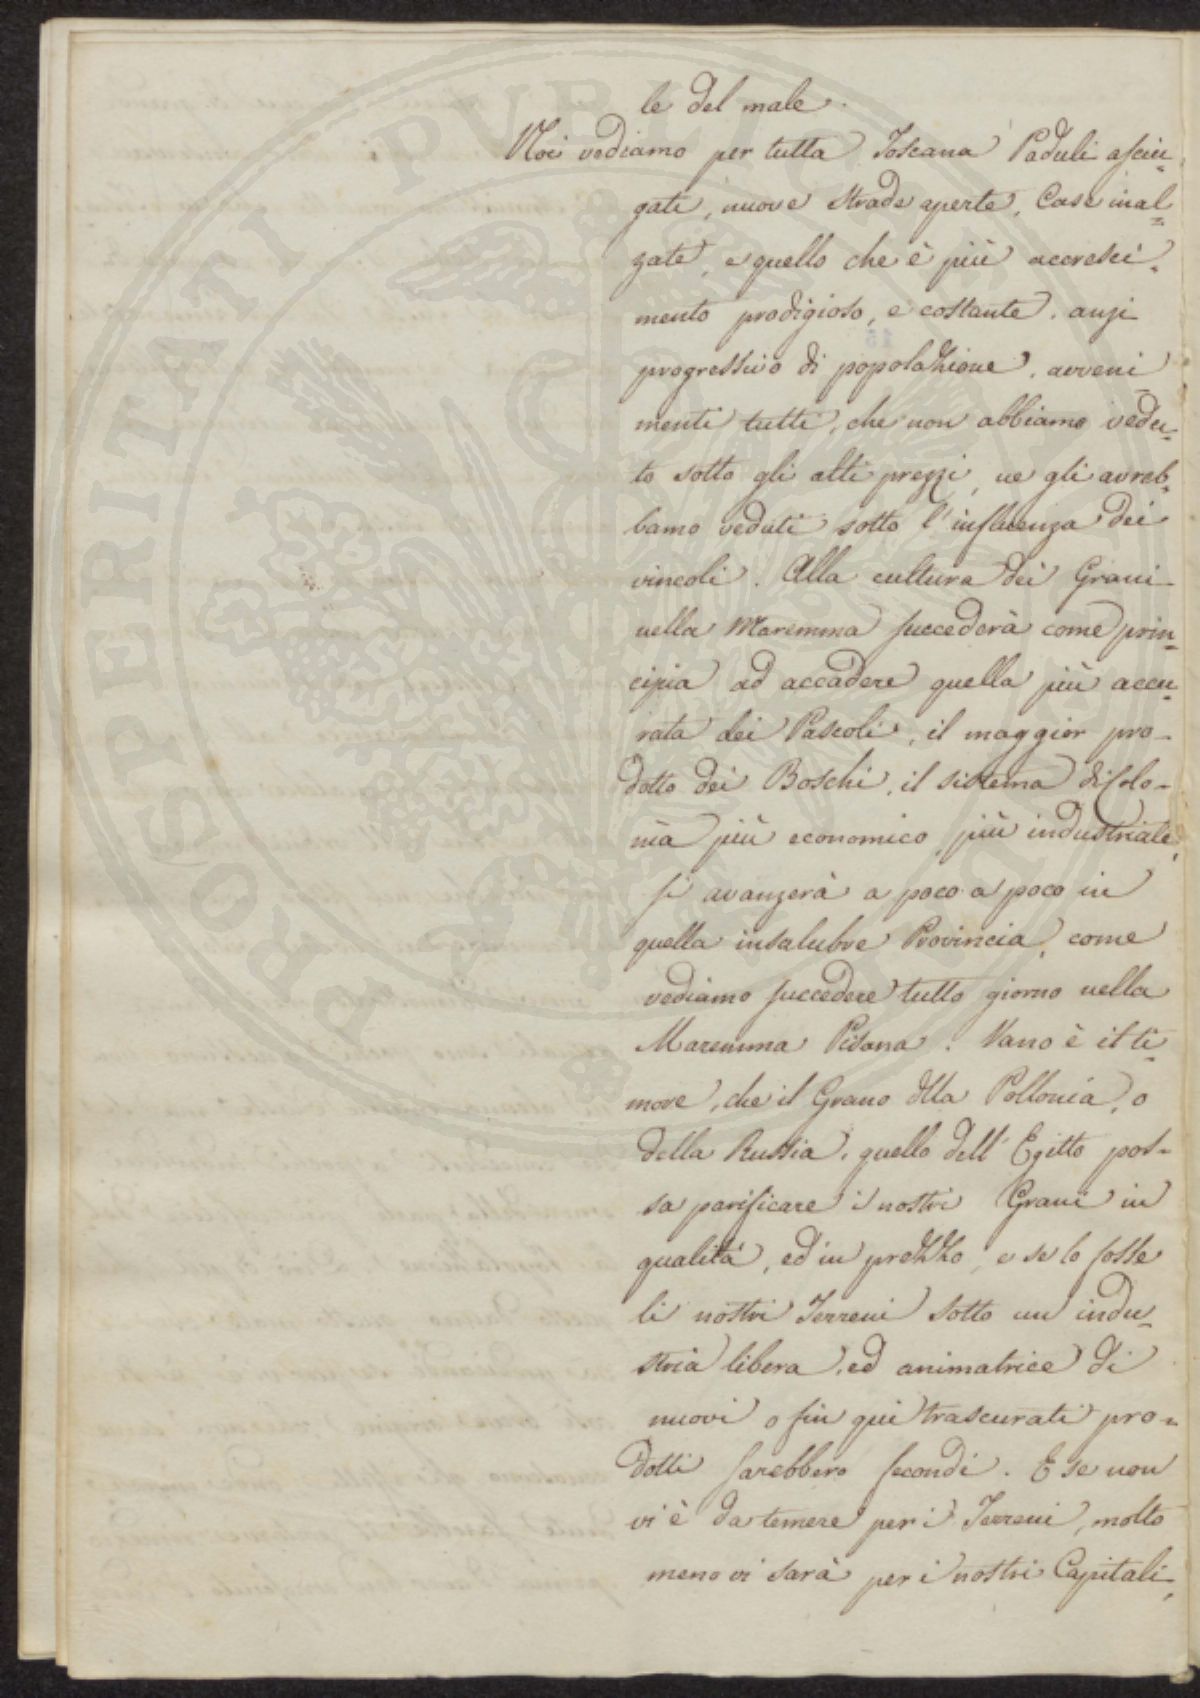 le del male.
Noi vediamo per tutta Toscana Paduli asciu=
gati, nuove strade aperte, Case inal=
zate, e quello che è più accresci=
mento prodigioso, e costante, anzi
progressivo di popolazione, avveni
menti tutti, che non abbiamo vedu=
to sotto gli alti prezzi, ne gli avreb=
bamo veduti sotto l'influenza dei
vincoli. Alla cultura dei Grani
nella Maremma succederà come prin=
cipia ad accadere quella più accu=
rata dei Pascoli, il maggior pro=
dotto dei Boschi, il sistema di Colo=
nia più economico, più industriale,
si avanzerà a poco a poco in
quella insalubre Provincia, come
vediamo succedere tutto giorno nella
Maremma Pisana. Vano è il ti=
more, che il Grano della Pollonia, o
della Russia, quello dell'Egitto pos=
sa parificare i nostri Grani in
qualità, ed in prezzo, e se lo fosse
li nostri Terreni sotto un indu=
stria libera, ed animatrice di
nuovi o fin qui trascurati pro=
dotti sarebbero fecondi. E se non
vi è da temere per i Terreni, molto
meno vi sarà per i nostri Capitali,
PROSPERITATI PUBLICAE